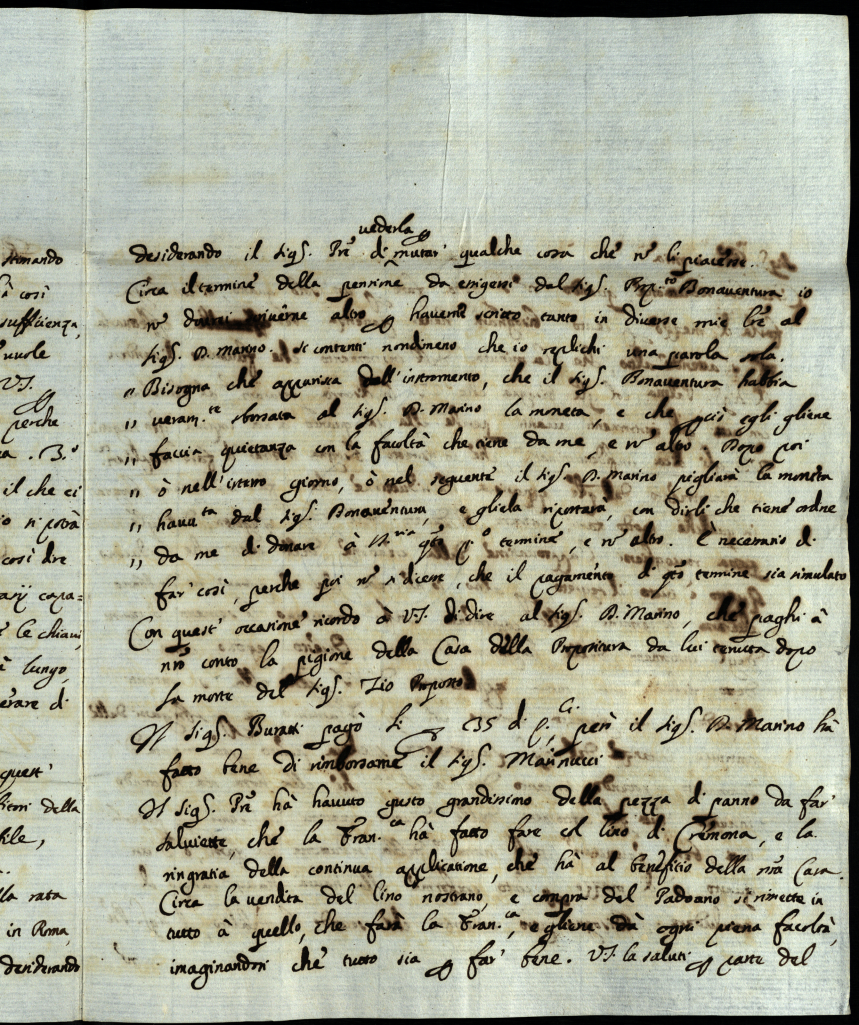 stimando
à così
suffitienza,
vuole
V.S.
perche
a . 3.°
il che ci
io si potrà
così dre
arij capa=
e le chiavi,
à lungo,
erare di
quest'
bitori della
bile,
lla rata
in Roma,
desiderando
vederla
desiderando il Sig.r Pré di mutar' qualche cosa che nõ li piacesse.
Circa il termine della pensione da esigersi dal Sig.r Prop.to Bonaventura io
nõ dovrei scriverne altro p haverne scritto tanto in diverse mie lre al
Sig.r D. Marino. Si contenti nondimeno che io replichi una parola sola.
„ Bisogna che apparisca dall'instromento, che il Sig.r Bonaventura habbia
„ veram.te sborsata al Sig.r D. Marino la moneta, e che p ciò egli gliene
„ faccia quietanza con la facoltà che tiene da me, e nõ altro. Dopo poi
„ ò nell'istesso giorno, ò nel seguente il Sig.r D. Marino pigliarà la moneta
„ havuta dal Sig.r Bonaventura, e gliela riportarà, con dirli che tiene ordine
„ da me di donare à V.S. q̃to p.o termine, e nõ altro. È necessario di
far' così, perche poi nõ si dicesse, che il pagamento di q̃to termine sia simulato
Con quest' occasione ricordo à V.S. di dire al Sig.r D. Marino, che paghi à
nrõ conto la pigione della Casa della Propositura da lui tenuta dopo
la morte del Sig.r Zio Proposto
Il Sig.r Buratti pagò li 35 di p.ci, però il Sig.r D. Marino hà
fatto bene di rimborsarne il Sig.r Marinucci
Il Sig.r Pré hà havuto gusto grandissimo della pezza di panno da far
salviette, che la Fran.ca hà fatto fare col lino di Cremona, e la
ringratia della continua applicatione, che hà al benefitio della nrã Casa.
Circa la vendita del lino nostrano, e compra del Padoano si rimette in
tutto à quello, che farà la Fran.ca, e gliene dà ogni piena facoltà,
imaginandosi che tutto sia p far' bene. V.S. la saluti p parte del